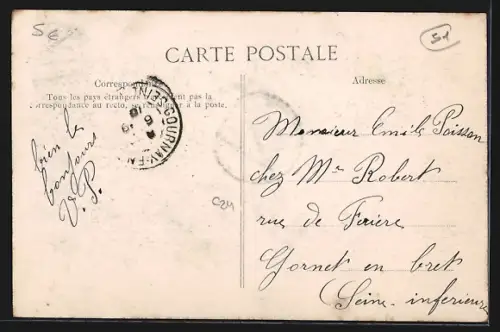 5e
51
CARTE POSTALE
Correspondance
Tous les pays étrangers n'acceptent pas la
correspondance au recto, se renseigner à la poste.
Adresse
GOURNAY-EN-
bien le
bonjours
V. P.
C211
Monsieur Emile Poisson
chez Mr Robert
rue de Feriere
Gornet en bret
(Seine-inferieure